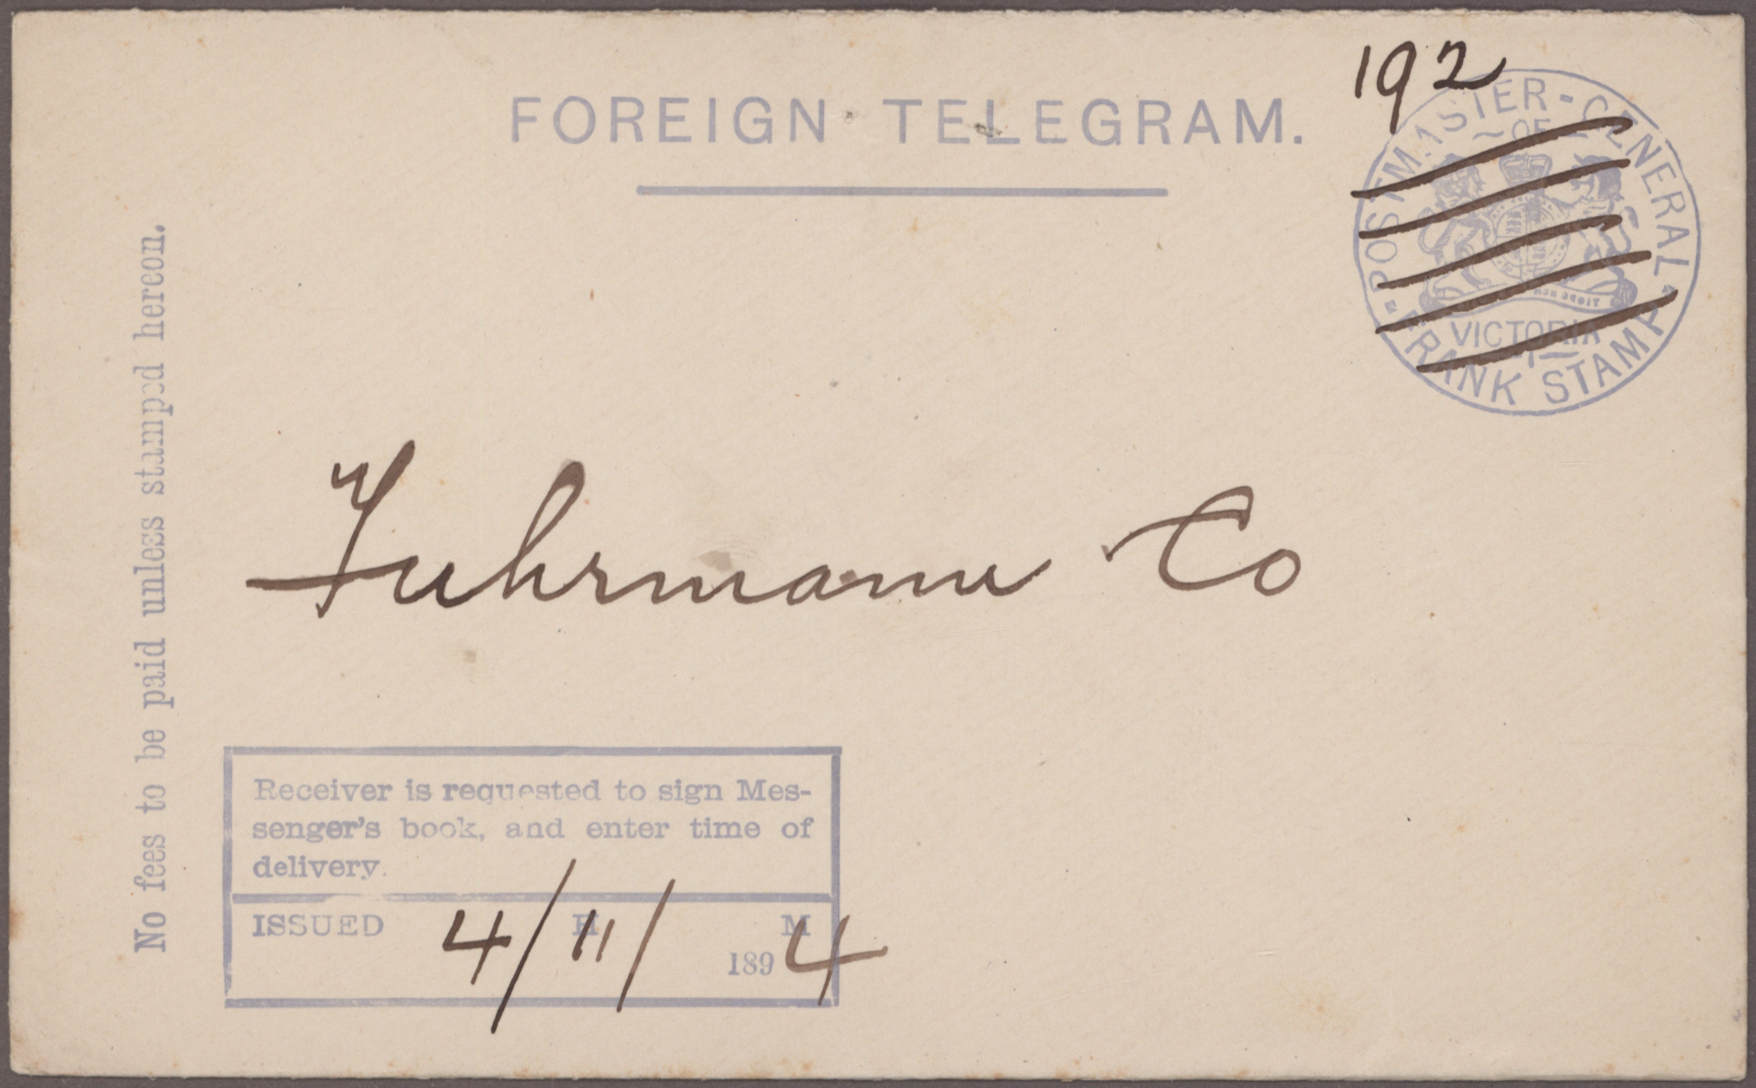 192
FOREIGN TELEGRAM.
POSTMASTER-GENERAL
OF
VICTORIA
FRANK STAMP
No fees to be paid unless stamped hereon.
Fuhrmann Co
Receiver is requested to sign Mes-
senger's book, and enter time of
delivery.
ISSUED H M
4/11/ 1894